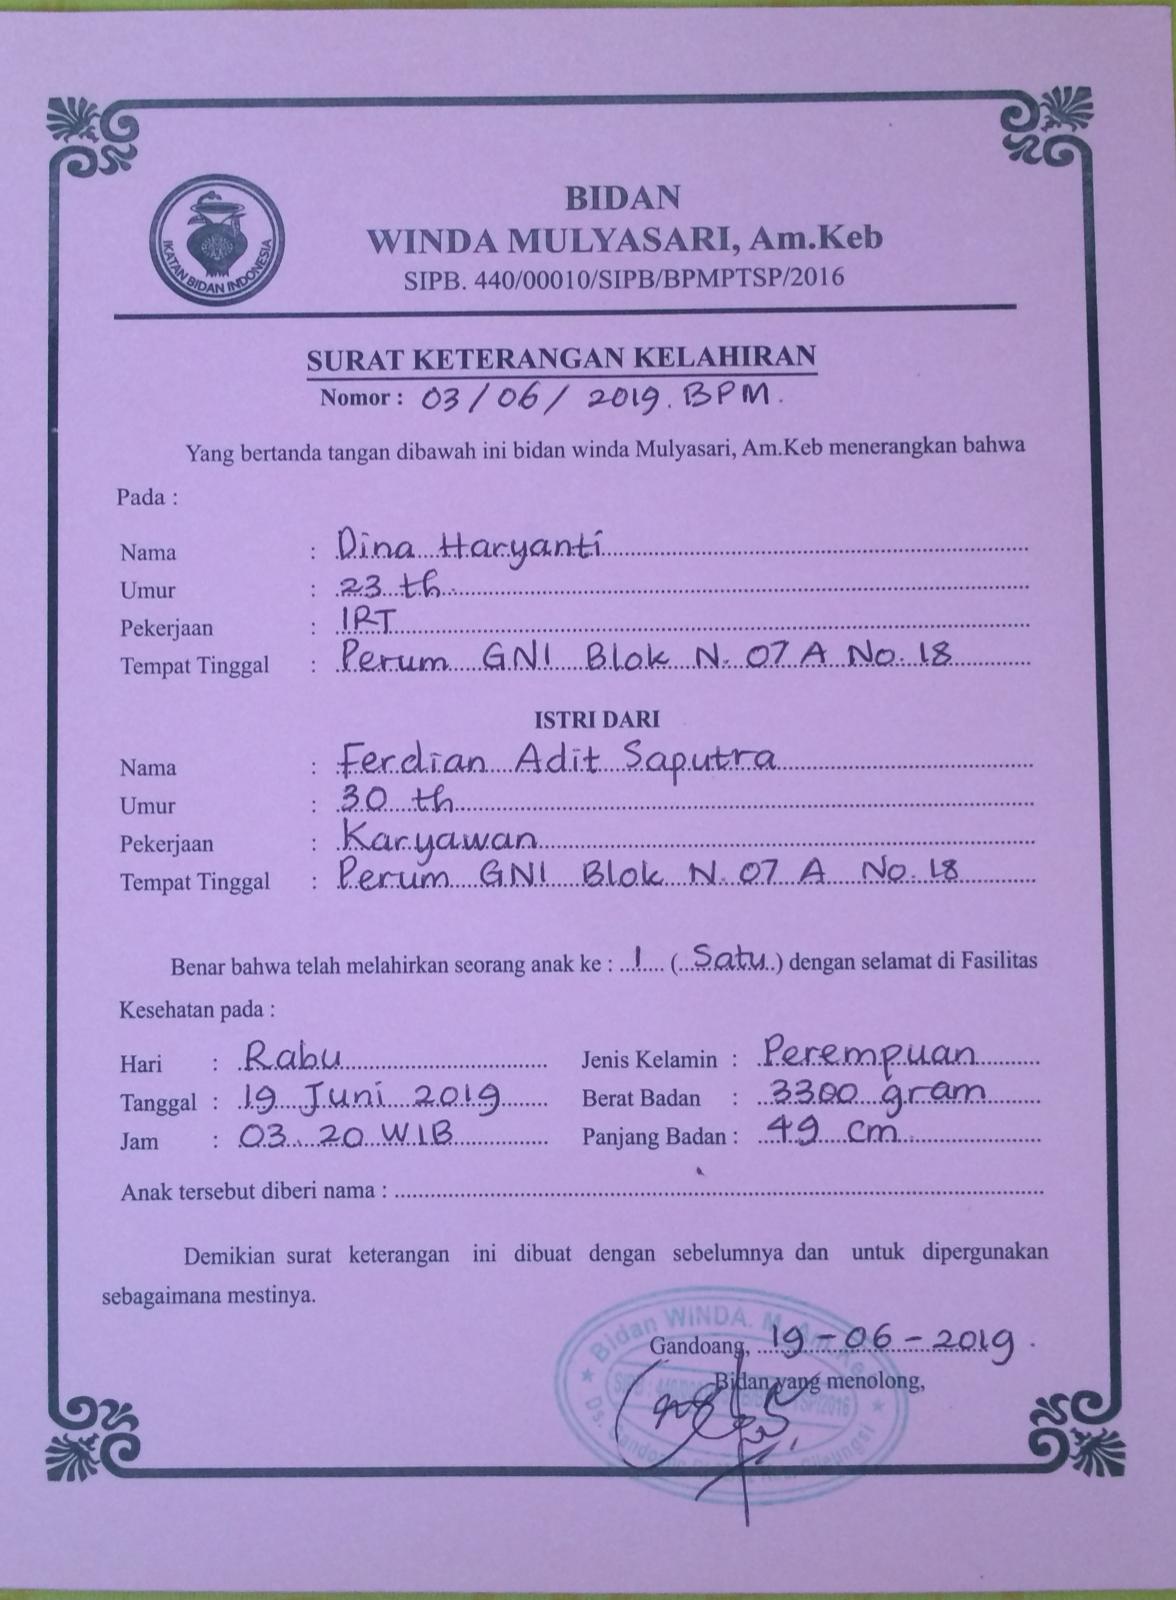 IKATAN BIDAN INDONESIA
BIDAN
WINDA MULYASARI, Am.Keb
SIPB. 440/00010/SIPB/BPMPTSP/2016
SURAT KETERANGAN KELAHIRAN
Nomor : 03/06/ 2019. BPM.
Yang bertanda tangan dibawah ini bidan winda Mulyasari, Am.Keb menerangkan bahwa
Pada :
Nama : Dina Haryanti
Umur : 23 th
Pekerjaan : IRT
Tempat Tinggal : Perum GNI Blok N. 07 A No. 18
ISTRI DARI
Nama : Ferdian Adit Saputra
Umur : 30 th
Pekerjaan : Karyawan
Tempat Tinggal : Perum GNI Blok N. 07 A No. 18
Benar bahwa telah melahirkan seorang anak ke : 1 (Satu) dengan selamat di Fasilitas
Kesehatan pada :
Hari : Rabu Jenis Kelamin : Perempuan
Tanggal : 19 Juni 2019 Berat Badan : 3300 gram
Jam : 03. 20 WIB Panjang Badan : 49 cm
Anak tersebut diberi nama :
Demikian surat keterangan ini dibuat dengan sebelumnya dan untuk dipergunakan
sebagaimana mestinya.
Gandoang, 19-06-2019.
Bidan yang menolong,
Bidan WINDA. M, Am.Ke